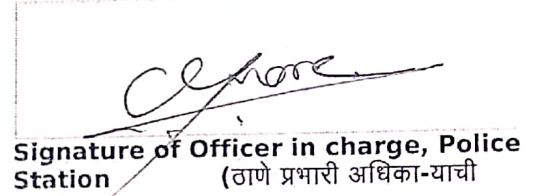 Signature of Officer in charge, Police
Station (ठाणे प्रभारी अधिका-याची